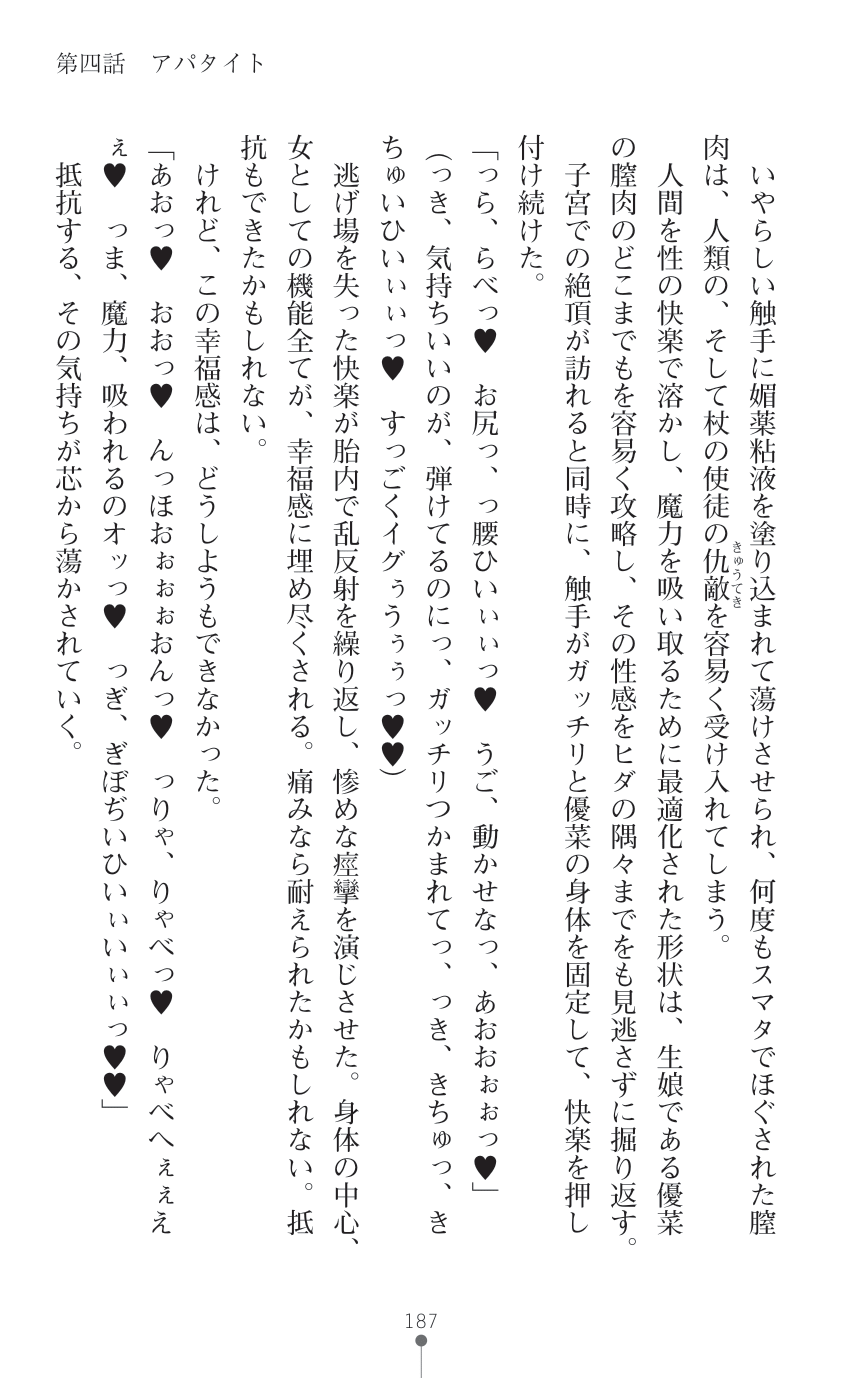 第四話　アパタイト
　いやらしい触手に媚薬粘液を塗り込まれて蕩けさせられ、何度もスマタでほぐされた膣
肉は、人類の、そして杖の使徒の仇敵を容易く受け入れてしまう。
きゅうてき
　人間を性の快楽で溶かし、魔力を吸い取るために最適化された形状は、生娘である優菜
の膣肉のどこまでもを容易く攻略し、その性感をヒダの隅々までをも見逃さずに掘り返す。
　子宮での絶頂が訪れると同時に、触手がガッチリと優菜の身体を固定して、快楽を押し
付け続けた。
「っら、らべっ♥　お尻っ、っ腰ひいぃぃっ♥　うご、動かせなっ、あおおぉぉっ♥」
（っき、気持ちいいのが、弾けてるのにっ、ガッチリつかまれてっ、っき、きちゅっ、き
ちゅいひいぃぃっ♥　すっごくイグぅうぅぅっ♥♥）
　逃げ場を失った快楽が胎内で乱反射を繰り返し、惨めな痙攣を演じさせた。身体の中心、
女としての機能全てが、幸福感に埋め尽くされる。痛みなら耐えられたかもしれない。抵
抗もできたかもしれない。
　けれど、この幸福感は、どうしようもできなかった。
「あおっ♥　おおっ♥　んっほおぉぉぉおんっ♥　っりゃ、りゃべっ♥　りゃべへぇぇえ
ぇ♥　っま、魔力、吸われるのオッっ♥　っぎ、ぎぼぢいひいぃいぃぃっ♥♥」
　抵抗する、その気持ちが芯から蕩かされていく。
187